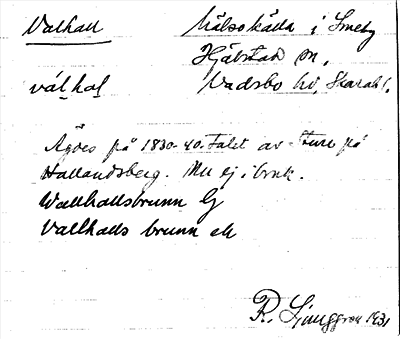 Valhall Hälsokälla i Smeby
Hjälstad sn.
válhal Vadsbo hd, Skarab l.
Ägdes på 1830-40-talet av Sture på
Hallandsberg. Nu ej i bruk.
Wallhallsbrunn G
Vallhalls brunn ek
R. Ljunggren 1931